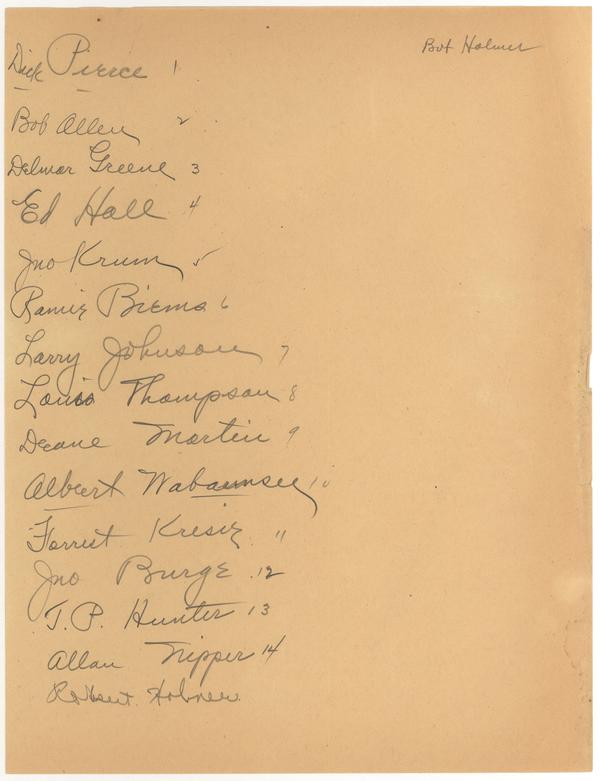 Bob Holmer
Dick Pierce 1
Bob Allen 2
Delmar Greene 3
Ed Hall 4
Jno Krum 5
Biems 6
Larry Johnson 7
Louis Thompson 8
Deane Martin 9
Albert Wabaunsee 10
Forrest 11
Jno Burge 12
T.P. Hunter 13
Allan Tripper 14
Robert